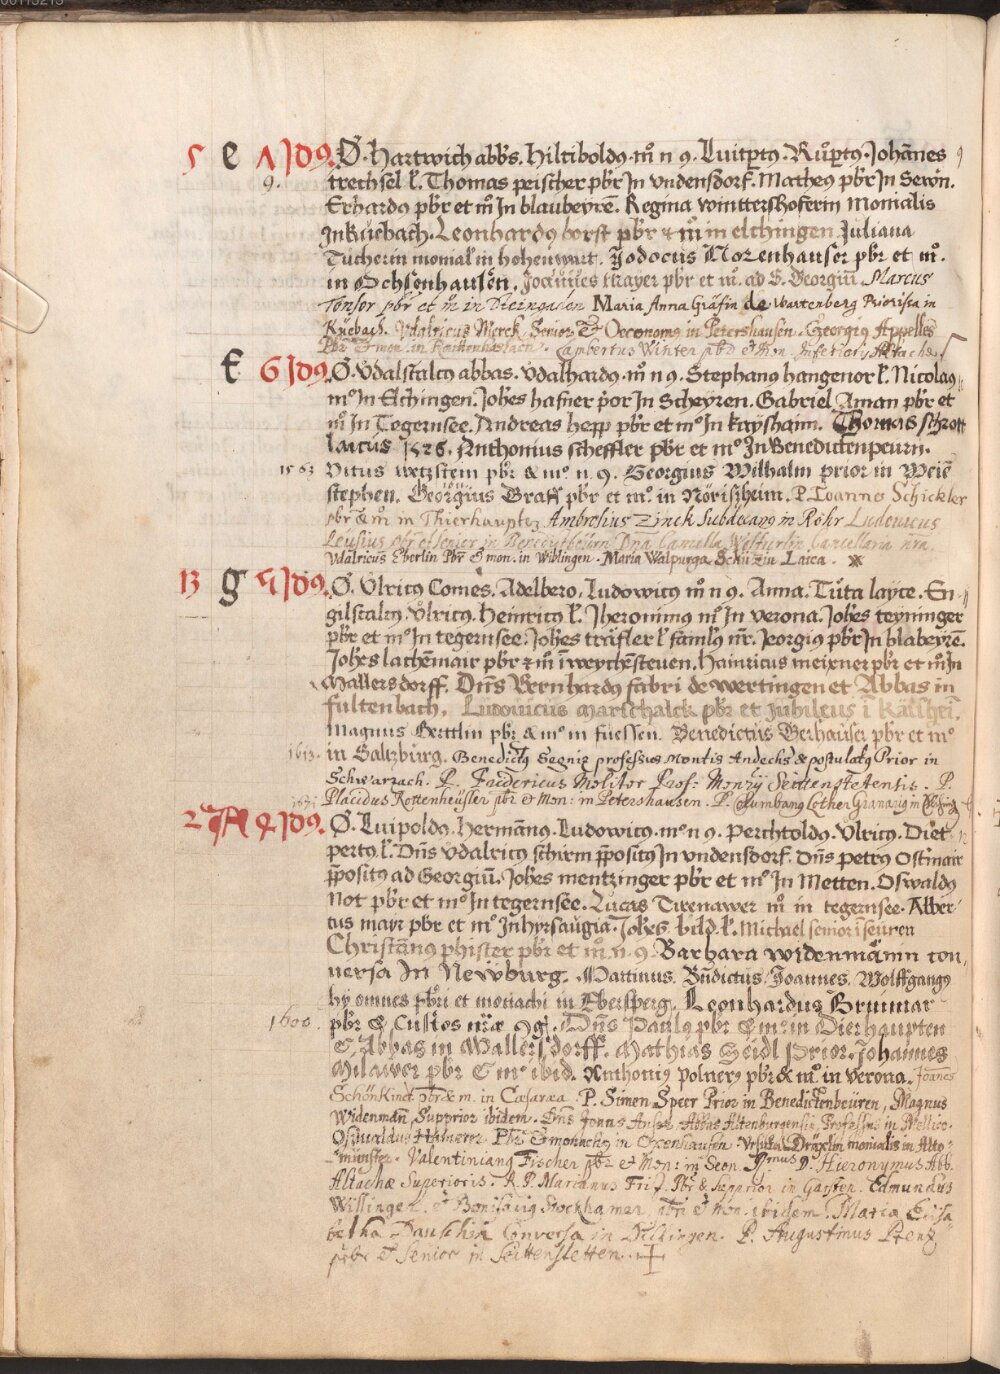 5 e Λ Jdꝰ. O. Hartwich abbs. Hiltiboldꝰ. m̊ n 9. Luitp̱tꝰ. Růp̱tꝰ. Johānes
9. trechsel ł. Thomas peischer pb̄r Jn vndensdorf. Matheꝰ pb̄r Jn Sewn.
Erhardꝰ pb̄r et m̊ Jn blaubeyrē. Regina winttershoferin Monialis
Jn Kücbach. Leonhardꝰ borst pb̄r & m̊ in elchingen. Juliana
Tucherin monial' in hohenwart. Jodocus Norenhauser pbr et m̊.
in Ochsenhausen. Joannes Mayer pbr et m̊. ad S. Georgiū. Marcus
Tonsor pbr et m̊ in Diezngaden Maria Anna Gräfin de Wartenberg Priorissa in
Küebach. Vdalricus Merck Senior & Oeconomꝰ in Petershausen. Georgiꝰ Appelles
Pbr & mon. in Raittenhaslach. Lambertus Winter pb̄r & Mon. Inferioris Altachæ.
f 6 Jdꝰ. O. Vdalscalcꝰ abbas. Vdalhardꝰ. m̊ n 9. Stephanꝰ hangenor ł. Nicolaꝰ
m̊ Jn Elchingen. Joh̄es hafner p̱or Jn Scheyren. Gabriel Aman pb̄r et
m̊ Jn Tegernsee. Andreas hepp pb̄r et m̊ Jn kayshaim. Thomas schrott
laicus 1526. Anthonius scheffler pb̄r et m̊ Jn Benedictenpeurn.
1563 Vitus wetzstein pb̄r & m̊ n. 9. Georgius Wilhalm prior in Weiē
stephen. Georgius Graff pb̄r et m̊ in Nörishheim. P. Joannes Schickler
pbr & m̊ in Thierhaupten Ambrosius Zinck Subdecanꝰ in Rohr Ludouicus
Leusius pbr et senior in Benedictbeurn Dna Camilla Cancellaria nr̄a.
Vdalricus Eberlin Pbr & mon. in Wiblingen. Maria Walpurga Schüzin Laica.
13 g 5 Jdꝰ. O. Vlricꝰ Comes. Adelbero. Ludowicꝰ m̊ n 9. Anna. Tůta layce. En-
gilscalcꝰ. Vlricꝰ. Heinricꝰ ł. Jheronimꝰ m̊ Jn verona. Joh̄es teyninger
pb̄r et m̊ Jn tegernsee. Joh̄es träxler ł famlꝰ nr̄. Jeorgiꝰ pb̄r Jn blabeyrē.
Joh̄es lachēmair pb̄r & m̊ ī weychēsteuen. Hainricus meixner pb̄r et m̊ Jn
Mallersdorff. Dn̄s Bernhardꝰ fabri de wertingen et Abbas in
fultenbach. Ludouicus Marschalck pb̄r et Jubileus ī Kaishei.
Magnus Berttlin pb̄r & m̊ in füessen. Benedictus Gerhauser pb̄r et m̊
1613. in Saltzburg. Benedictꝰ Segniꝰ professus Montis Andechs & postulatꝰ Prior in
Schwarzach. P. Fridericus Molitor Prof: Monrÿ Seittenstetensis. P.
Placidus Rottenheüsler pbr & Mon: in Petershausen. P. Columbanꝰ Lother Granariꝰ in
2 A 4 Jdꝰ. O. Luipoldꝰ. Hermānꝰ. Ludowicꝰ. m̊ n 9. Perchtoldꝰ. Vlricꝰ. Diet
pertꝰ. ł. Dn̄s Vdalricꝰ schirm p̄positꝰ Jn vndensdorf. Dn̄s petrꝰ Ostmair
p̄positꝰ ad Georgiū. Joh̄es mentzinger pb̄r et m̊ Jn Metten. Oswaldꝰ
Not pb̄r et m̊ Jn tegernsee. Lucas Tirenawer m̊ in tegernsee. Alber
tus mayr pbr et m̊ Jn hyrsaugia. Joh̄es bild. ł. Michael senior ī seuren
Christānꝰ phister pb̄r et m̊. n. 9. Barbara widenmānin con
uersa Jn Newburg. Martinus. Bn̄dictus. Joannes. Wolffgangꝰ
hy omnes pb̄ri et monachi in Ebersperg. Leonhardus Brunnar
1600. pbr & Custos nr̄æ 9g. Dn̄s Paulꝰ pbr & m̊ in Dierhaupten
& Abbas in Mallersdorff. Mathias Seidl Prior. Johannes
Milawer pbr & m̊ ibid. Anthoniꝰ Polnerꝰ pbr & m̊. in verona. Joanes
Schönkind Pbr & m. in Cæsarea. P. Simen Speer Prior in Benedictenbeuren, Magnus
Widenmañ, Supprior ibidem. Dn̄s Jonas Anser Abbas Altenburgensis, Professus in Mellico.
Oswaldus Pbr & monachꝰ in Oxenhausen. Vrsula Dräxlin monialis in Alto-
münster. Valentinianꝰ Fischer pbr & Mon: in Seon. Rmus D. Hieronymus Abb.
Altachæ Superioris. R. P. Marianus Friz. Pbr & Supprior in Garsten. Edmundus
Willinger. et Bonifaciꝰ Stockhamer, pbri & Mon. ibidem. Maria Elisa
betha Dauschin Conversa in Dilingen. P. Augustinus Prenz
pr̄br & Senior in Seittenstetten.